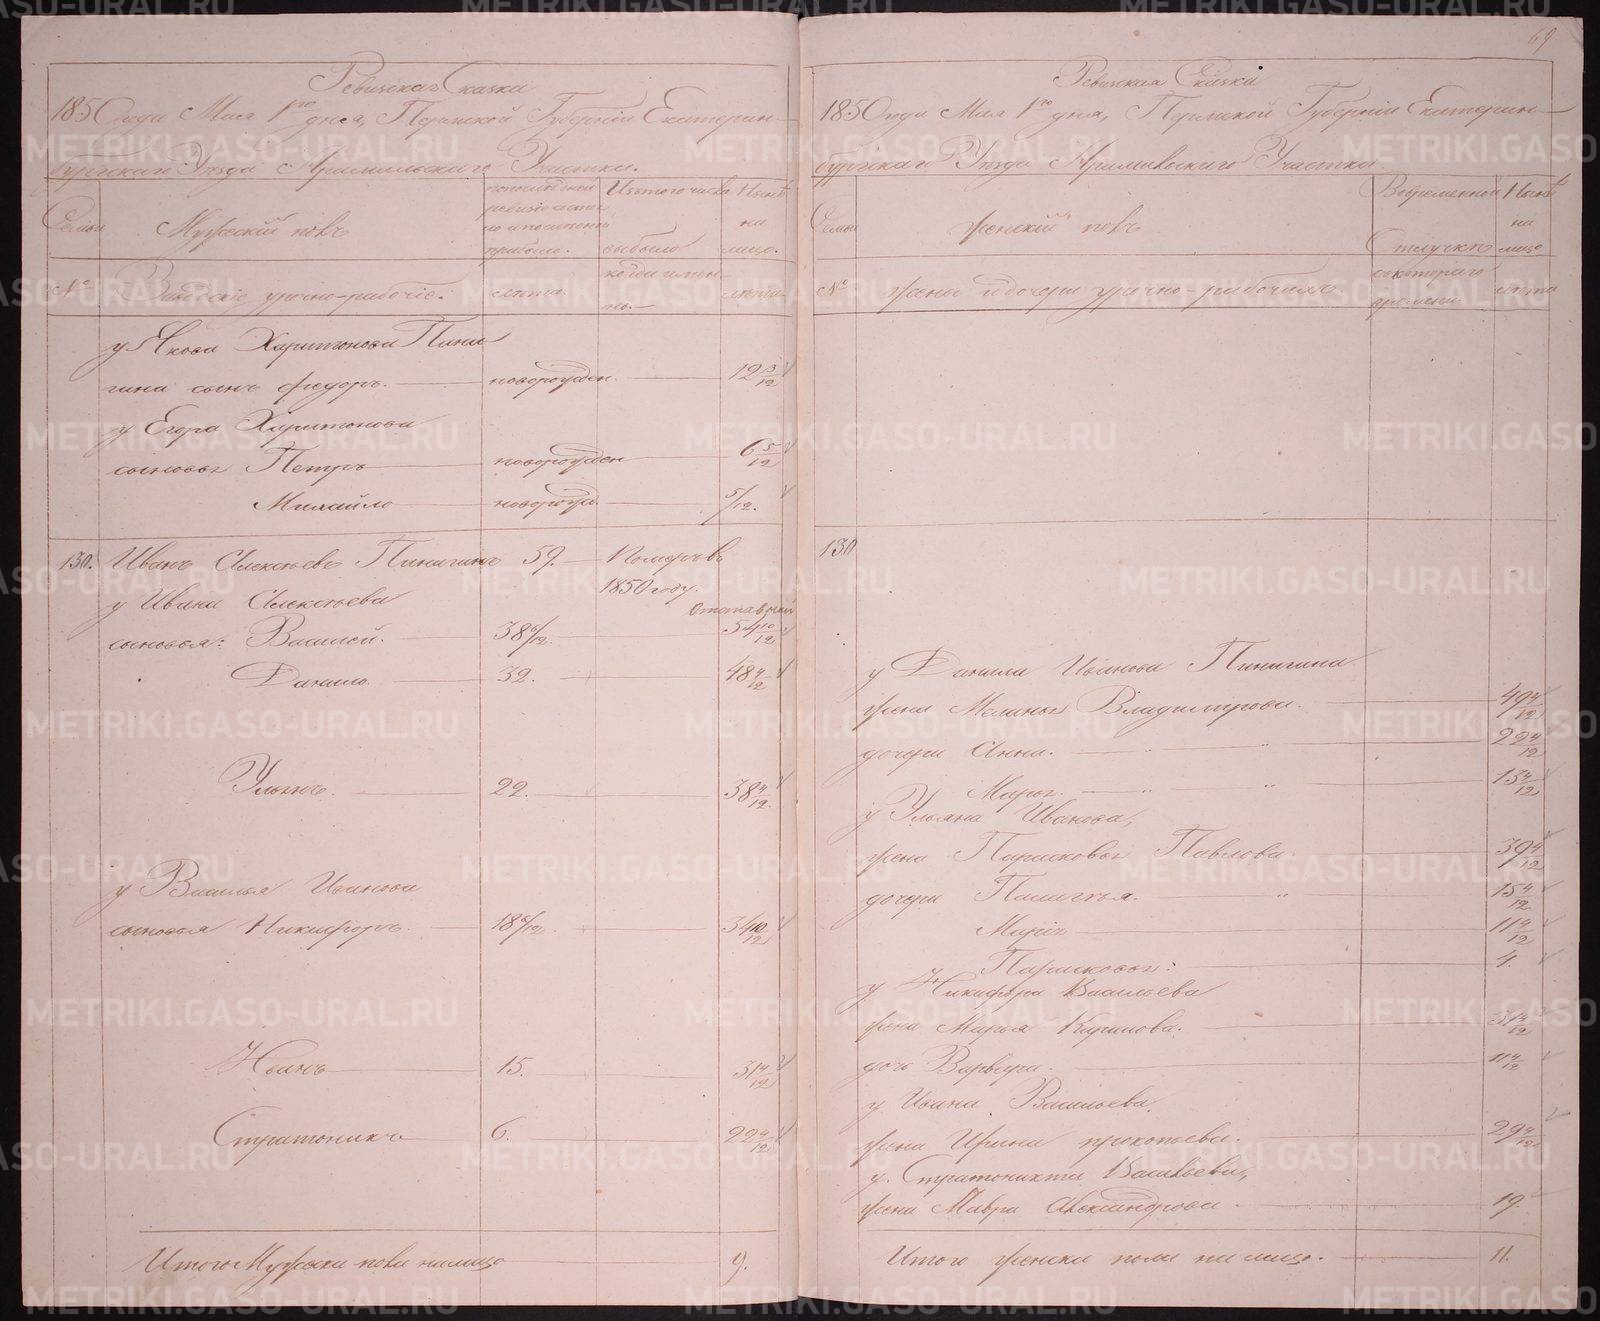 69
Ревизская Сказка
1850 года Мая 1го дня, Пермской Губернiи Екатерин-
бургскаго Уезда Арамильскаго Участка.
Семьи
Мужескiй полъ
по последней
ревизiи состо
яло и после оной
прибыло.
Изъ того числа
выбыло
Ныне
на
лицо.
№
Заводскiе урочно-рабочiе:
лета.
когда имен-
но.
лета.
у Якова Харитонова Пини
гина сынъ Федоръ. новорожден. 12 3/12
у Егора Харитонова
сыновья Петръ новорожден 6 5/12
Михайло новорожд. 5/12.
130. Иванъ Алексеевъ Пинигинъ 59. Померъ въ
1850 году.
у Ивана Алексеева
Отставный
сыновья: Василей. 38 6/12. 54 10/12
Данило. 32. 48 4/12
Ульянъ. 22. 38 4/12.
у Василья Иванова
сыновья Никифоръ. 18 6/12. 34 10/12
Иванъ 15. 31 4/12
Стратоникъ 6. 22 4/12
Итого Мужеска пола налицо 9.
Ревизская Сказка
1850 года Мая 1го дня, Пермской Губернiи Екатерин-
бургскаго Уезда Арамильскаго Участка
Семьи
Женскiй полъ
Во временной
Отлучке
Ныне
на
лицо
№
жены и дочери урочно-рабочихъ.
съ котораго
времени.
лета
130
у Данила Иванова Пинигина
жена Меланья Владимiрова. 49 4/12
дочери Анна. 22 4/12
Марья. 15 4/12
у Ульяна Иванова,
жена Парасковья Павлова. 39 4/12
дочери Палагея. 15 4/12
Марiя 11 4/12
Парасковья: 4.
у Никифора Васильева
жена Марья Кирилова. 31 4/12
дочь Варвара. 11 4/12
у Ивана Васильева.
жена Ирина прокопьева. 29 4/12
у Стратоника Васильева,
жена Мавра Александрова. 19.
Итого женска пола на лицо. 11.
METRIKI.GASO-URAL.RU